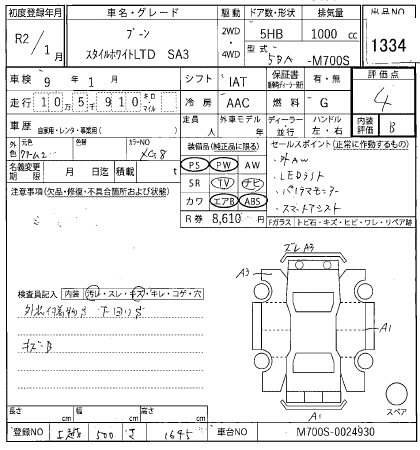 初度登録年月 車名・グレード 駆動 ドア数・形状 排気量 出品NO
R2/1月 ブーン 2WD・4WD 5HB 1000 cc 1334
スタイルホワイトLTD SA3 型式 5BA -M700S
車検 9年1月 シフト IAT 保証書 有・無 評価点
走行 10万5千910 キロ・マイル 冷房 AAC 燃料 G 4
車歴 自家用・レンタ・事業用( ) 定員 人 外車モデル 年 ディーラー・並行 ハンドル 左・右 内装評価 B
外色 元色 色替 カラーNO XG8
装備品(純正品に限る) セールスポイント(正常に作動するもの)
名義変更期限 月 日迄 積載 t PS PW AW ・社外AW
注意事項(欠品・修復・不具合箇所および状態) SR TV ナビ ・LEDライト
カワ エアB ABS ・パノラマモニター
・スマートアシスト
R券 8,610 円 Fガラス トビ石・キズ・ヒビ・ワレ・リペア跡
ズレ A3
A3
検査員記入 内装 汚レ・スレ・キズ・キレ・コゲ・穴
A1
キズB
スペア
A1
長さ cm 幅 cm 高さ cm
登録NO 500 1645 車台NO M700S-0024930